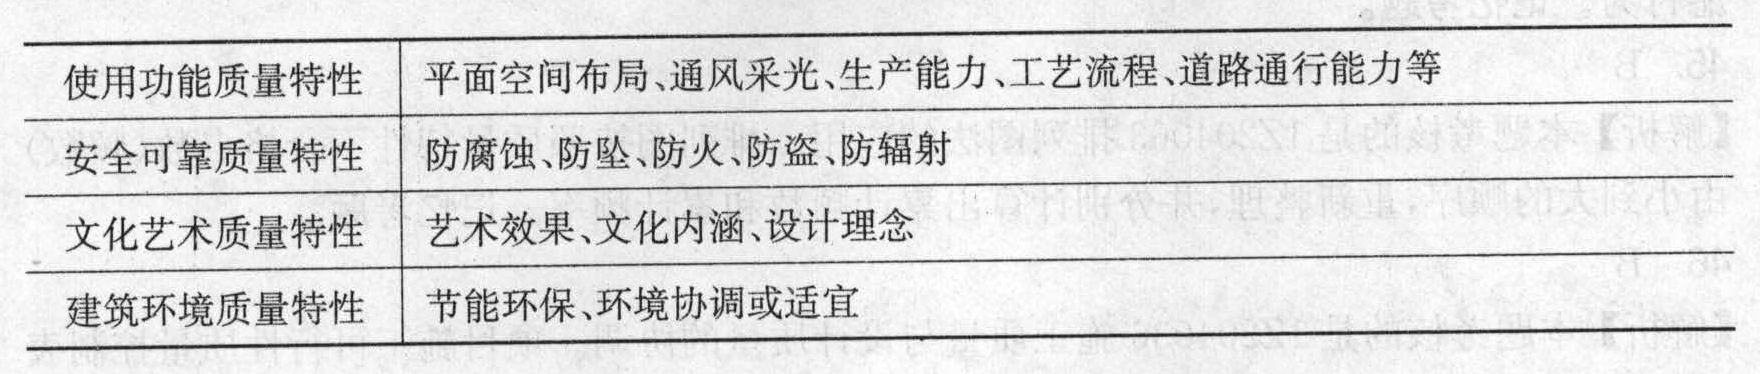 使用功能质量特性 平面空间布局、通风采光、生产能力、工艺流程、道路通行能力等
安全可靠质量特性 防腐蚀、防坠、防火、防盗、防辐射
文化艺术质量特性 艺术效果、文化内涵、设计理念
建筑环境质量特性 节能环保、环境协调或适宜